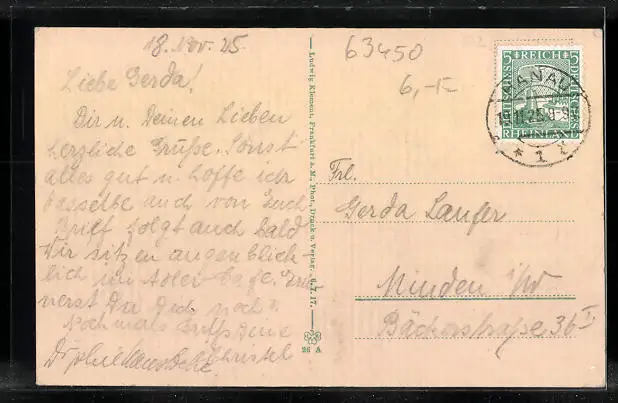 18. Nov. 25
Liebe Gerda!
Dir u. Deinen Lieben
herzliche Grüße. Sonst
alles gut u. hoffe ich
dasselbe auch von Euch
Brief folgt auch bald
Wir sitzen augenblick-
lich im Adler Café. Erin
nerst Du Dich noch?
Nochmals Grüße Deine
Christel
Ludwig Klement, Frankfurt a. M., Phot., Druck u. Verlag.
26 A
63450
6,-
5 REICH 5
RHEINLAND
HANAU
* 1
Frl.
Gerda Laufer
Minden i/W
Bäckerstraße 36 I